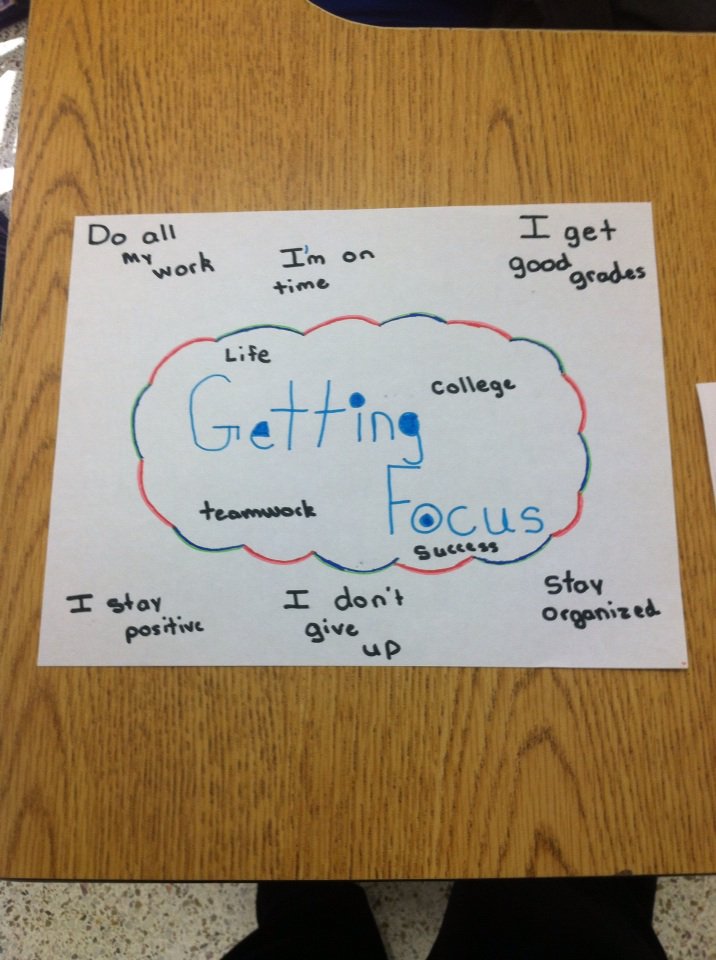 Do all
my work
I'm on
time
I get
good grades
Life
college
Getting
Focus
teamwork
success
I stay
positive
I don't
give
up
Stay
organized